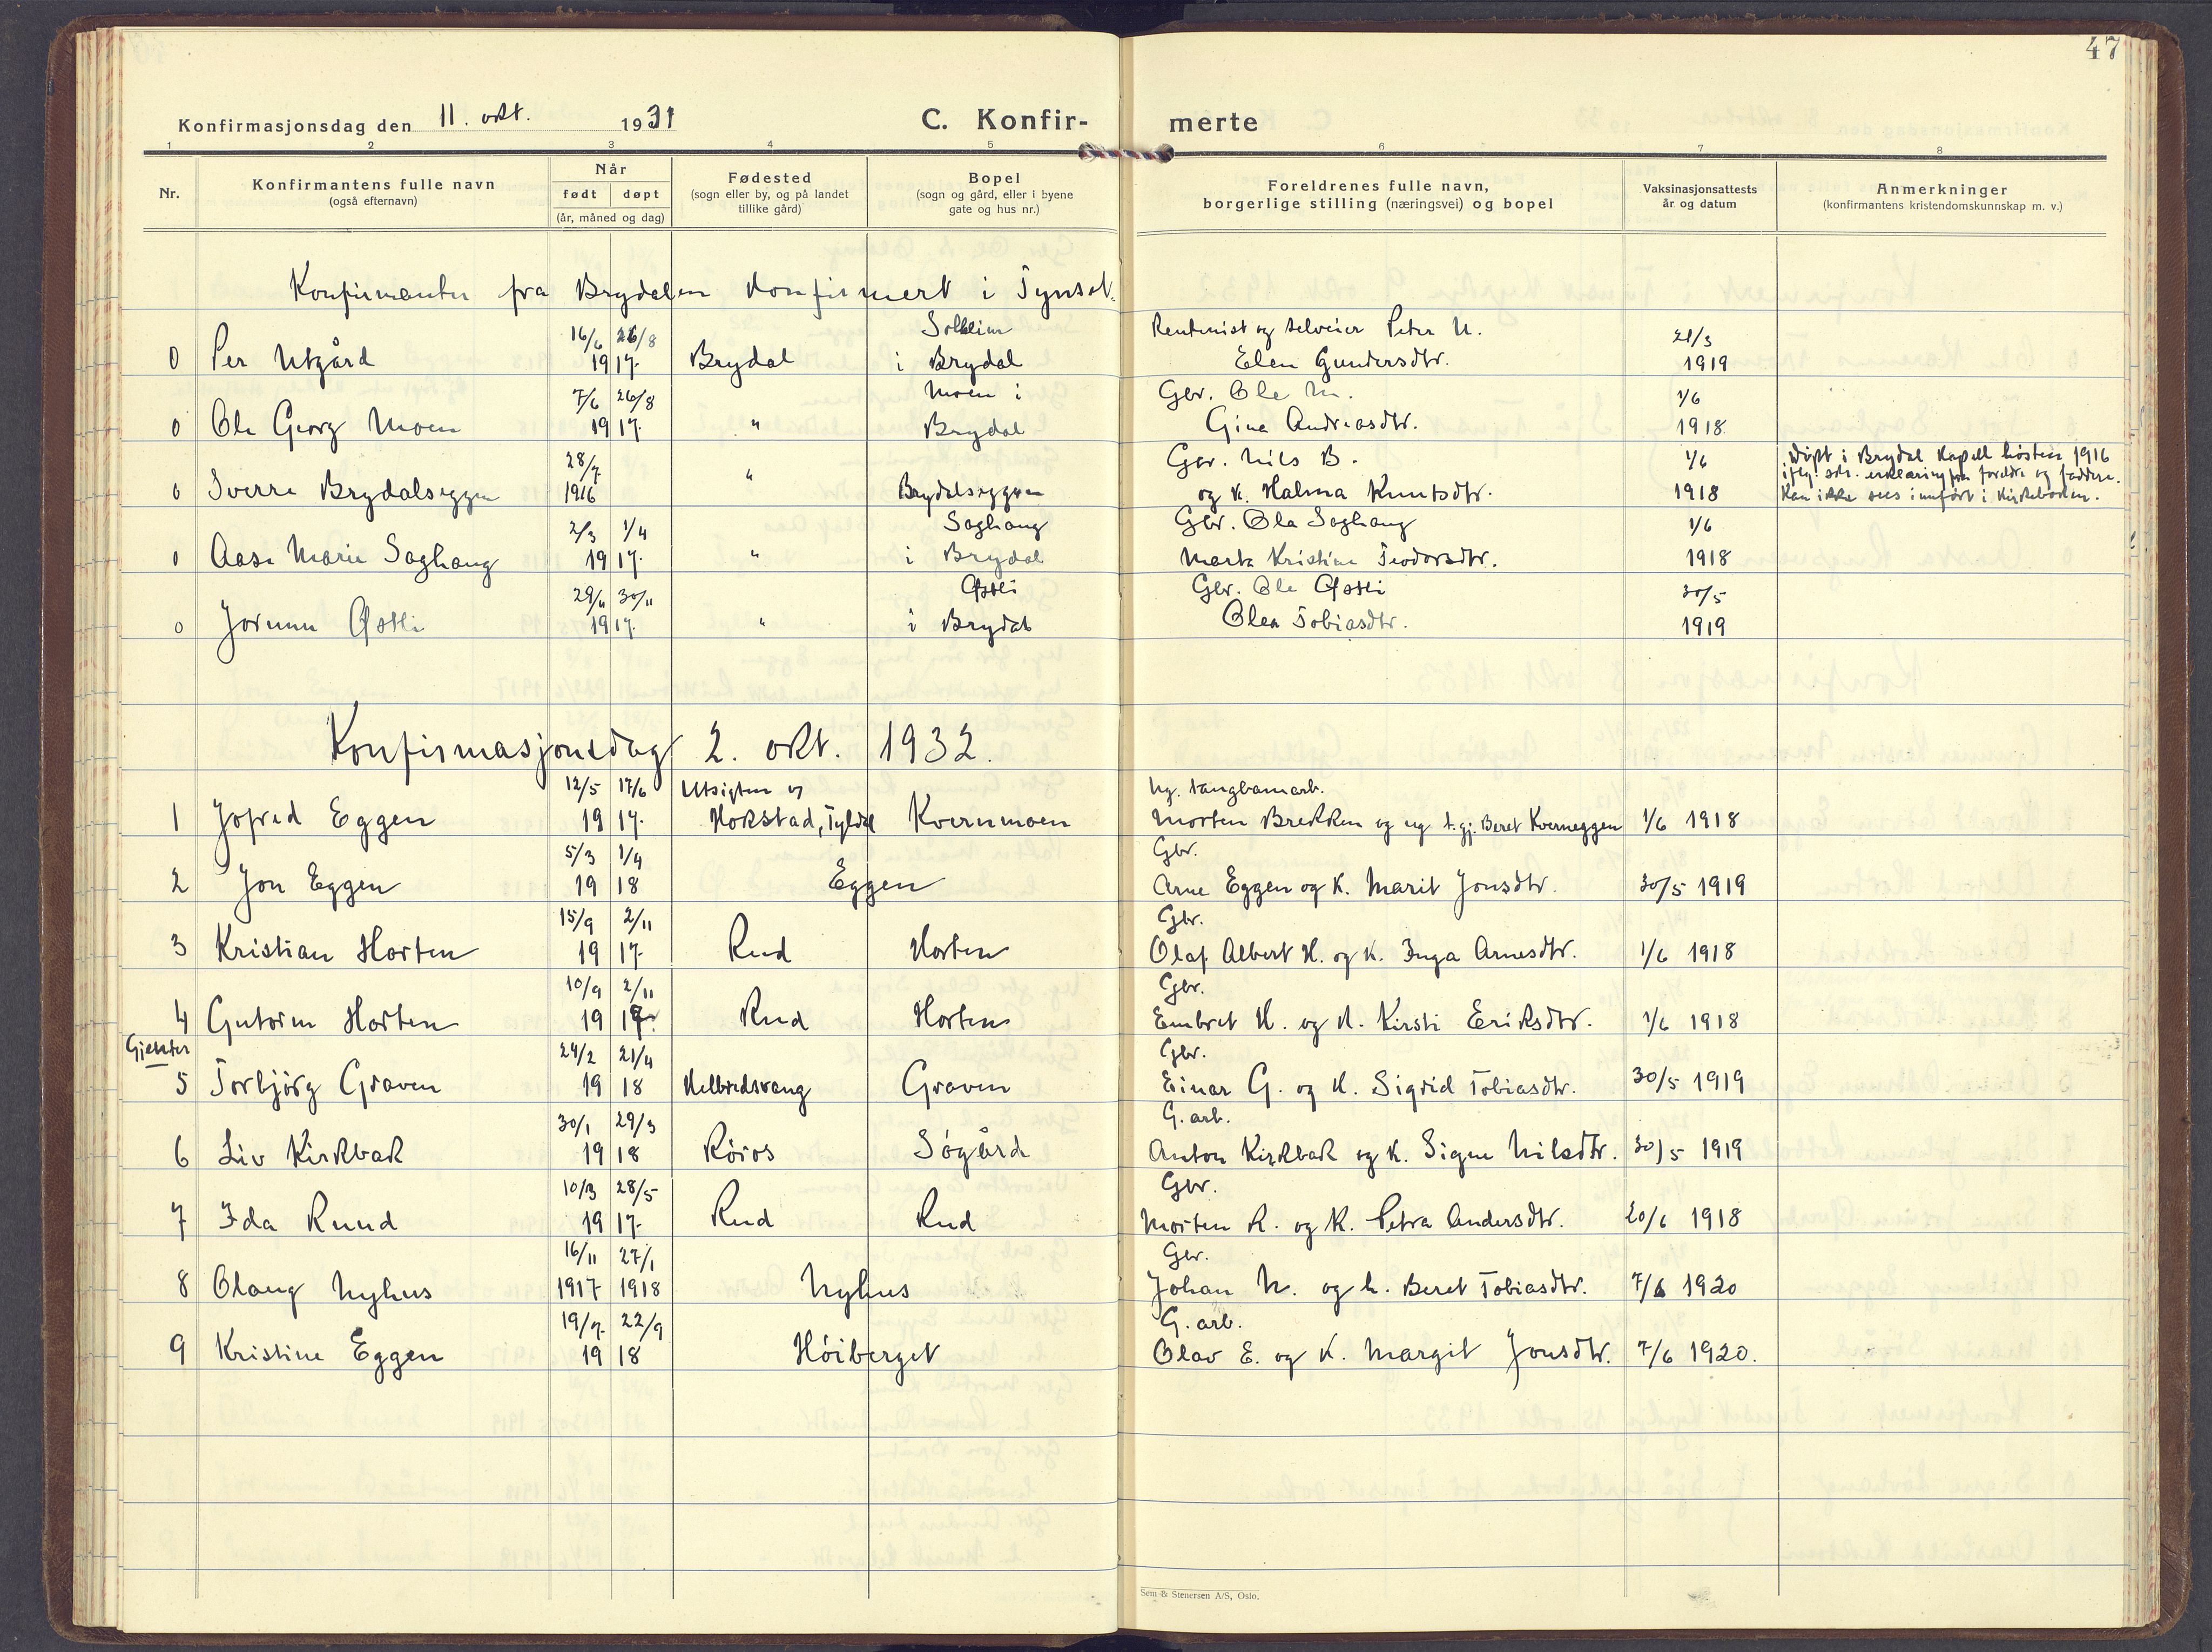 47
Konfirmasjonsdag den 11. okt. 1931 C. Konfir- merte
1 2 3 4 5 6 7 8
Nr. Konfirmantens fulle navn (også efternavn) Når født døpt (år, måned og dag) Fødested (sogn eller by, og på landet tillike gård) Bopel (sogn og gård, eller i byene gate og hus nr.) Foreldrenes fulle navn, borgerlige stilling (næringsvei) og bopel Vaksinasjonsattests år og datum Anmerkninger (konfirmantens kristendomskunnskap m. v.)
Konfirmanter fra Brydalen konfirmert i Tynset.
16/6 26/8 Solheim Rentenist og selveier Peter U. 21/3
0 Per Utgård 1917. Brydal i Brydal Elen Gundersdtr. 1919
7/6 26/8 Moen i Gbr. Ole M. 1/6
0 Ole Georg Moen 1917. " Brydal Gina Andreasdtr. 1918
28/7 " Gbr. Nils B. 1/6 Døpt i Brydal Kapell høsten 1916
0 Sverre Brydalseggen 1916 Brydalseggen og k. Halma Knutsdtr. 1918 iflg. skr. erklæring fra foreldre og faddere.
Kan ikke sees innført i kirkeboken.
2/3 1/4 Saghaug Gbr. Ola Saghaug 1/6
0 Aase Marie Saghaug 1917. " i Brydal Marta Kristine Teodorsdtr. 1918
29/11 30/11 Østli Gbr. Ole Østli 30/5
0 Jorunn Østli 1917. " i Brydal Olea Tobiasdtr. 1919
Konfirmasjonsdag 2. okt. 1932.
12/5 17/6 Utsigten og Ug.
1 Jofrid Eggen 1917. Hokstad, Tyldal Kvernmoen Morten Brekken og ug t.gj. Beret Kverneggen 1/6 1918
5/3 1/4 Gbr.
2 Jon Eggen 1918 Eggen Arne Eggen og k. Marit Jonsdtr. 30/5 1919
15/9 2/11 Gbr.
3 Kristian Horten 1917. Rud Horten Olaf Albert H. og k. Inga Arnesdtr. 1/6 1918
10/9 2/11 Gbr.
4 Gutorm Horten 1917. Rud Horten Embret H. og k. Kirsti Eriksdtr. 1/6 1918
Gjenter 24/2 21/4 Gbr.
5 Torbjörg Graven 1918 Helbredsvang Graven Einar G. og k. Sigrid Tobiasdtr. 30/5 1919
30/1 29/3 G. arb.
6 Liv Kirkbak 1918 Röros Sögård Anton Kirkbak og k. Signe Nilsdtr. 30/5 1919
10/3 28/5 Gbr.
7 Ida Ruud 1917. Rud Rud Morten R. og k. Petra Andersdtr. 20/6 1918
16/11 27/1 Gbr.
8 Olaug Nyhus 1917 1918 Nyhus Johan N. og h. Beret Tobiasdtr. 7/6 1920
19/7. 22/9 G. arb.
9 Kristine Eggen 1918 Höiberget Olav E. og k. Margit Jonsdtr. 7/6 1920.
Sem & Stenersen A/S, Oslo.